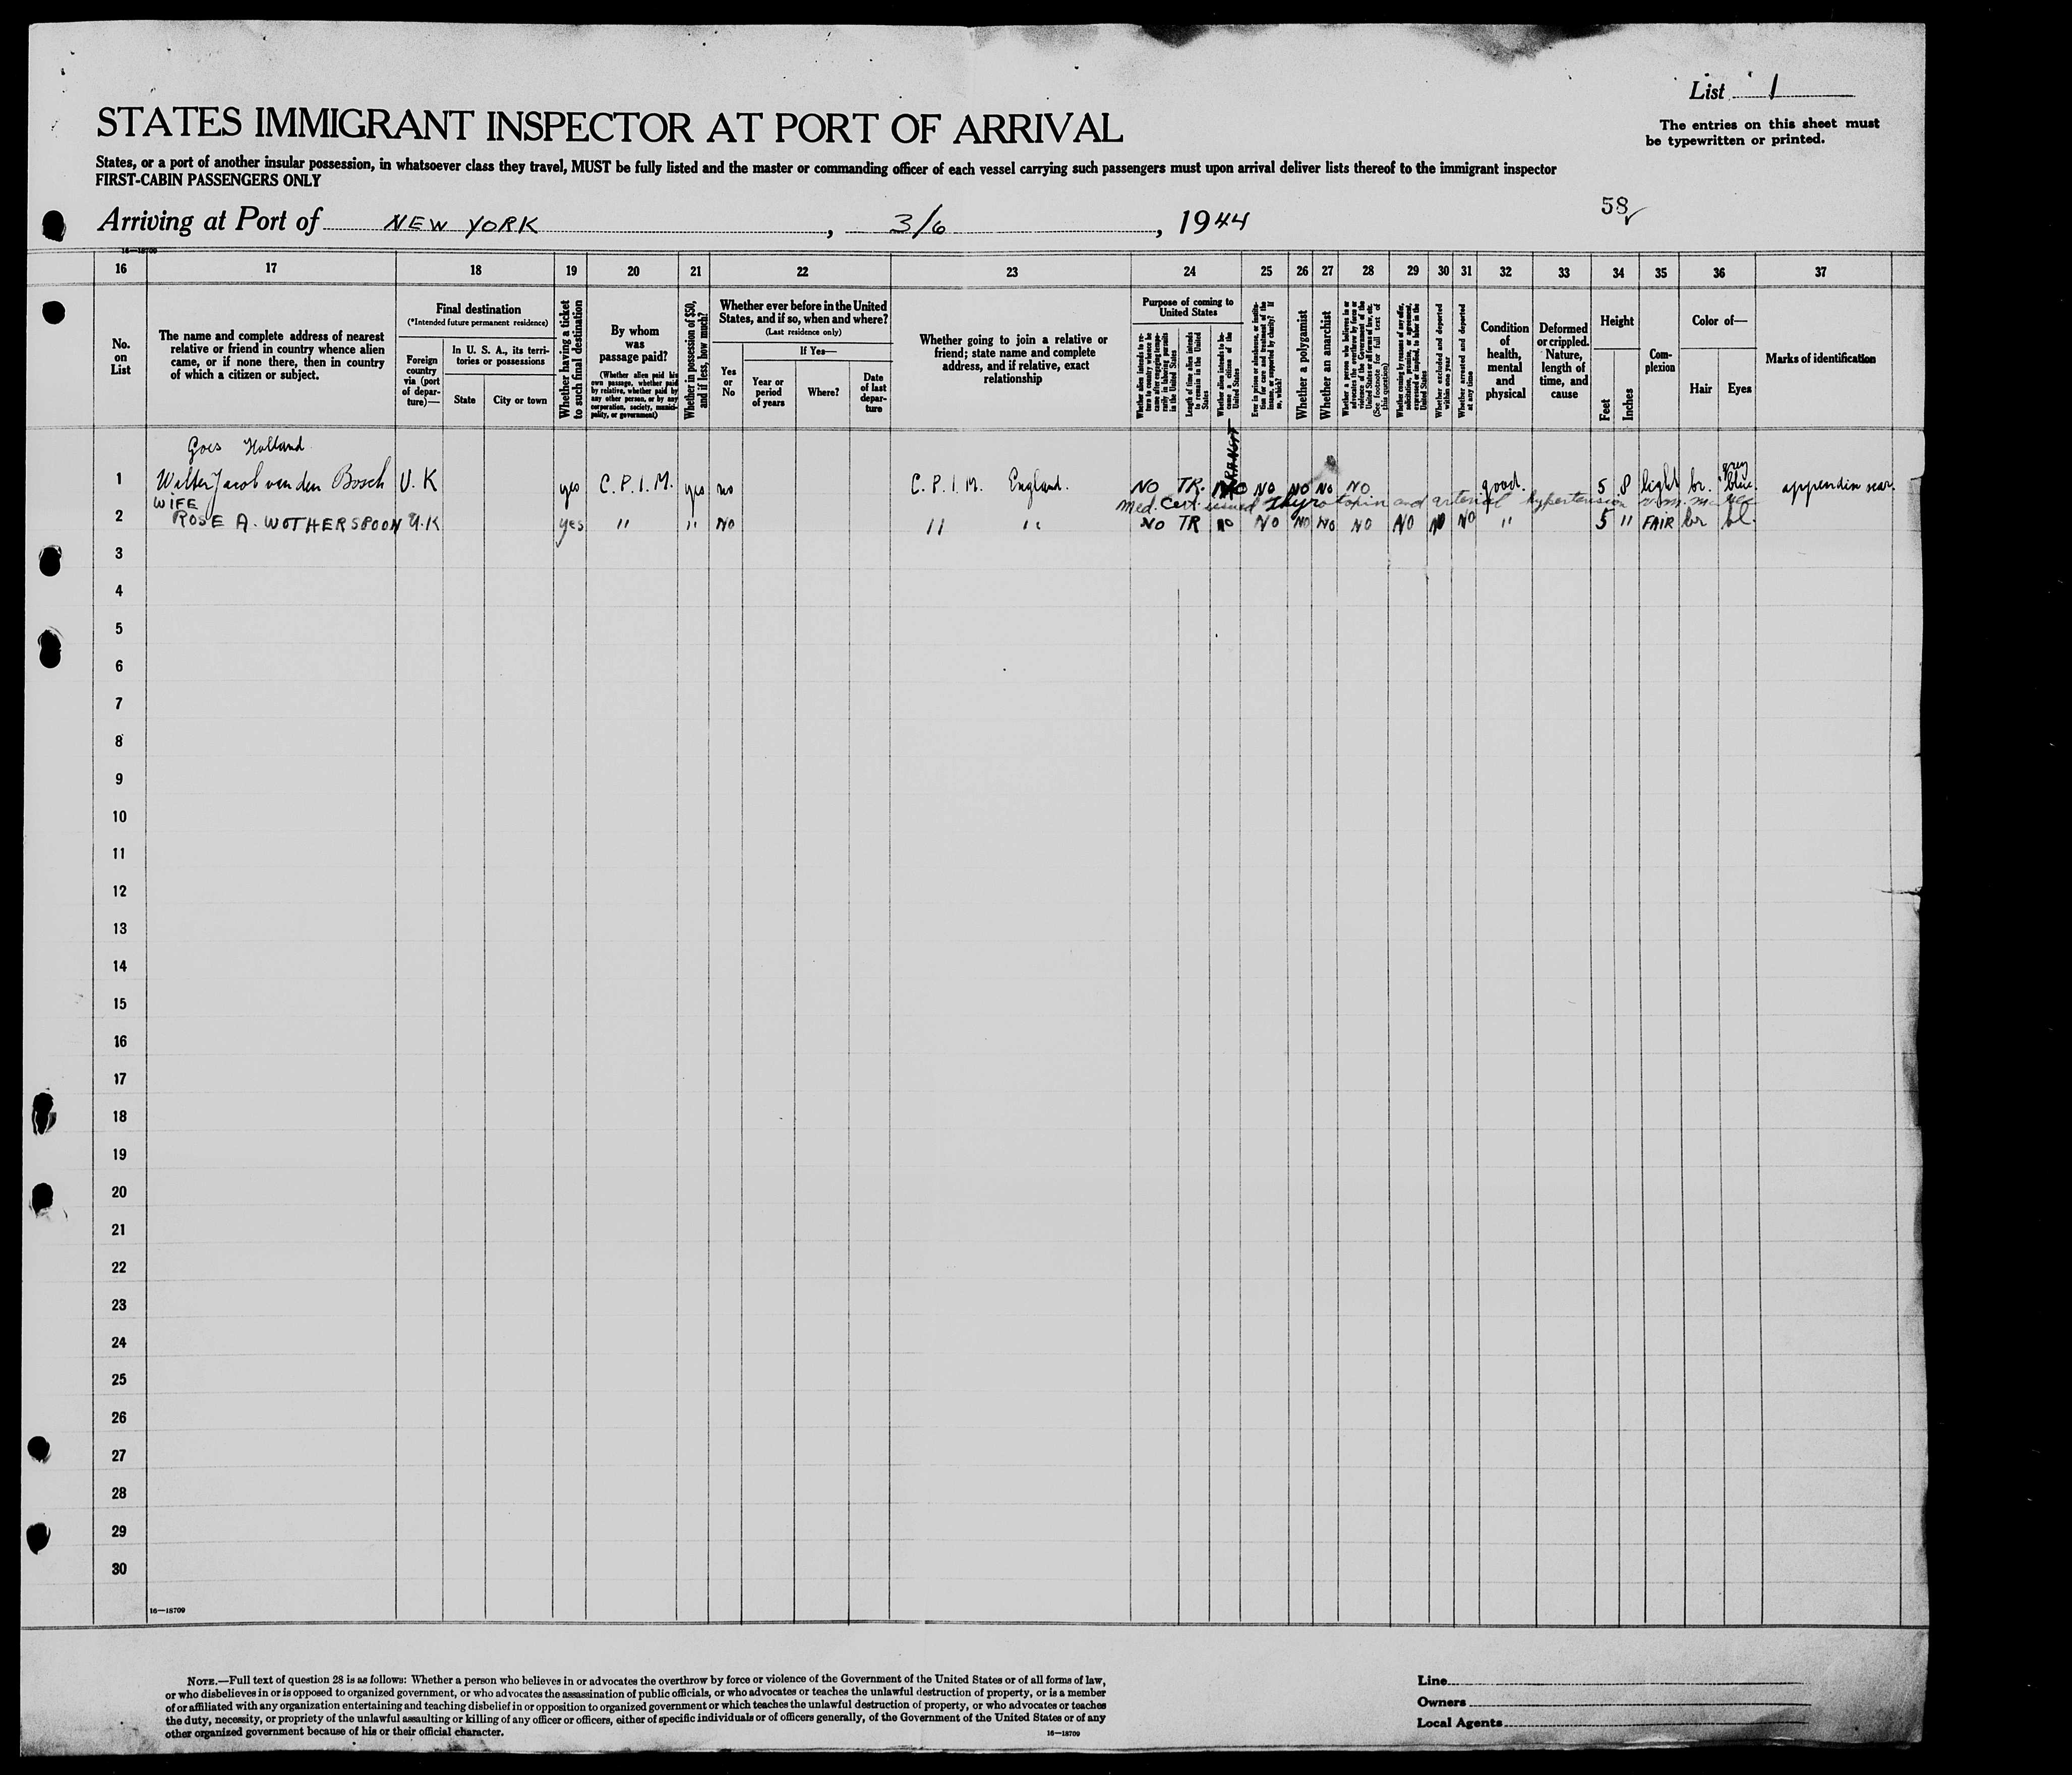 List 1
The entries on this sheet must
be typewritten or printed.
STATES IMMIGRANT INSPECTOR AT PORT OF ARRIVAL
States, or a port of another insular possession, in whatsoever class they travel, MUST be fully listed and the master or commanding officer of each vessel carrying such passengers must upon arrival deliver lists thereof to the immigrant inspector
FIRST-CABIN PASSENGERS ONLY
58
Arriving at Port of NEW YORK, 3/6, 1944
16—18709
16 17 18 19 20 21 22 23 24 25 26 27 28 29 30 31 32 33 34 35 36 37
No.
on
List
The name and complete address of nearest
relative or friend in country whence alien
came, or if none there, then in country
of which a citizen or subject.
Final destination
(*Intended future permanent residence)
Foreign
country
via (port
of depar-
ture)—
In U. S. A., its terri-
tories or possessions
State
City or town
Whether having a ticket
to such final destination
By whom
was
passage paid?
(Whether alien paid his
own passage, whether paid
by relative, whether paid by
any other person, or by any
corporation, society, munici-
pality, or government)
Whether in possession of $50,
and if less, how much?
Whether ever before in the United
States, and if so, when and where?
(Last residence only)
Yes
or
No
If Yes—
Year or
period
of years
Where?
Date
of last
depar-
ture
Whether going to join a relative or
friend; state name and complete
address, and if relative, exact
relationship
Purpose of coming to
United States
Whether alien intends to re-
turn to country whence he
came after engaging tempo-
rarily in laboring pursuits
in the United States
Length of time alien intends
to remain in the United
States
Whether alien intends to be-
come a citizen of the
United States
Ever in prison or almshouse, or institu-
tion for care and treatment of the
insane, or supported by charity? If
so, which?
Whether a polygamist
Whether an anarchist
Whether a person who believes in or
advocates the overthrow by force or
violence of the Government of the
United States or all forms of law, etc.
(See footnote for full text of
this question)
Whether coming by reasons of any offer,
solicitation, promise, or agreement,
expressed or implied, to labor in the
United States
Whether excluded and deported
within one year
Whether arrested and deported
at any time
Condition
of
health,
mental
and
physical
Deformed
or crippled.
Nature,
length of
time, and
cause
Height
Feet
Inches
Com-
plexion
Color of—
Hair
Eyes
Marks of identification
Goes Holland.
1 Walter Jacob van den Bosch U. K yes C. P. I. M. yes no C. P. I. M. England. NO TR. NO NO NO NO NO good. 5 8 light br. grey blue appendix scar.
TRANSIT
Med. Cert. issued and arterial hypertension
WIFE
2 ROSE A. WOTHERSPOON U.K yes " " NO " " NO TR no NO NO NO NO NO NO NO " 5 " FAIR br bl.
3
4
5
6
7
8
9
10
11
12
13
14
15
16
17
18
19
20
21
22
23
24
25
26
27
28
29
30
16—18709
NOTE.—Full text of question 28 is as follows: Whether a person who believes in or advocates the overthrow by force or violence of the Government of the United States or of all forms of law,
or who disbelieves in or is opposed to organized government, or who advocates the assassination of public officials, or who advocates or teaches the unlawful destruction of property, or is a member
of or affiliated with any organization entertaining and teaching disbelief in or opposition to organized government or which teaches the unlawful destruction of property, or who advocates or teaches
the duty, necessity, or propriety of the unlawful assaulting or killing of any officer or officers, either of specific individuals or of officers generally, of the Government of the United States or of any
other organized government because of his or their official character.
16—18709
Line
Owners
Local Agents